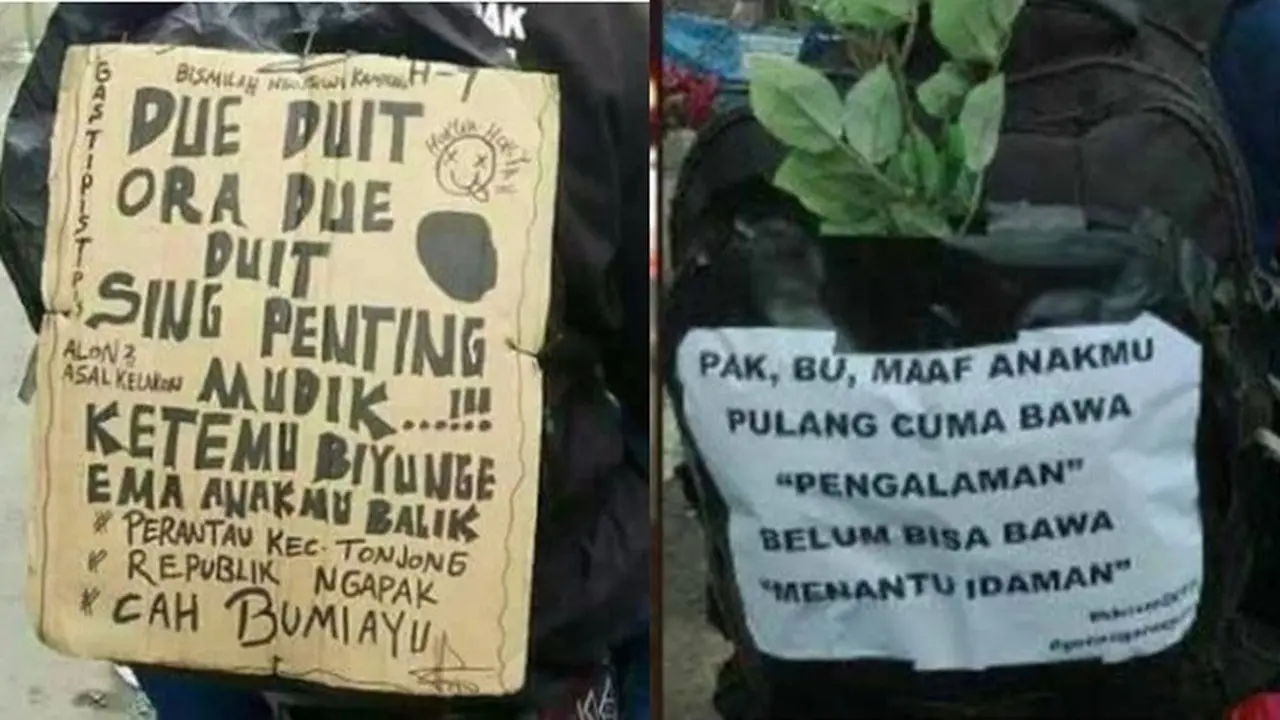 GASTIPISTPIS
BISMILAH
H-7
DUE DUIT
ORA DUE
DUIT
SING PENTING
ALON2
ASAL KELAKON
MUDIK...!!!
KETEMU BIYUNGE
EMA ANAKMU BALIK
* PERANTAU KEC. TONJONG
* REPUBLIK NGAPAK
* CAH BUMIAYU
PAK, BU, MAAF ANAKMU
PULANG CUMA BAWA
"PENGALAMAN"
BELUM BISA BAWA
"MENANTU IDAMAN"